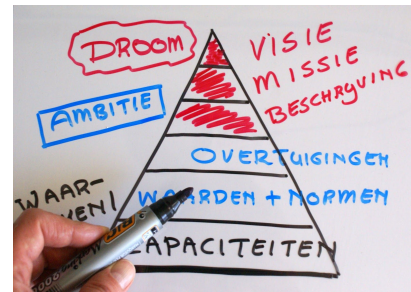 DROOM
VISIE
MISSIE
BESCHRYVING
AMBITIE
OVERTUIGINGEN
WAAR-
WAARDEN + NORMEN
CAPACITEITEN